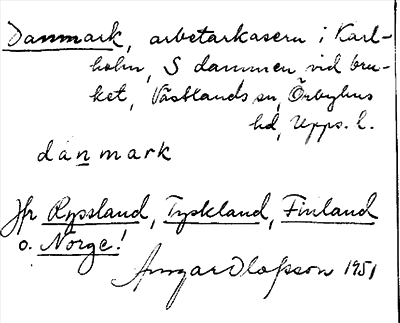 Danmark, arbetarkasern i Karl-
holm, S dammen vid bru-
ket, Västlands sn, Örbyhus
hd, Upps. l.
danmark
Jfr Ryssland, Tyskland, Finland
o. Norge!
Ansgar Olofsson 1951